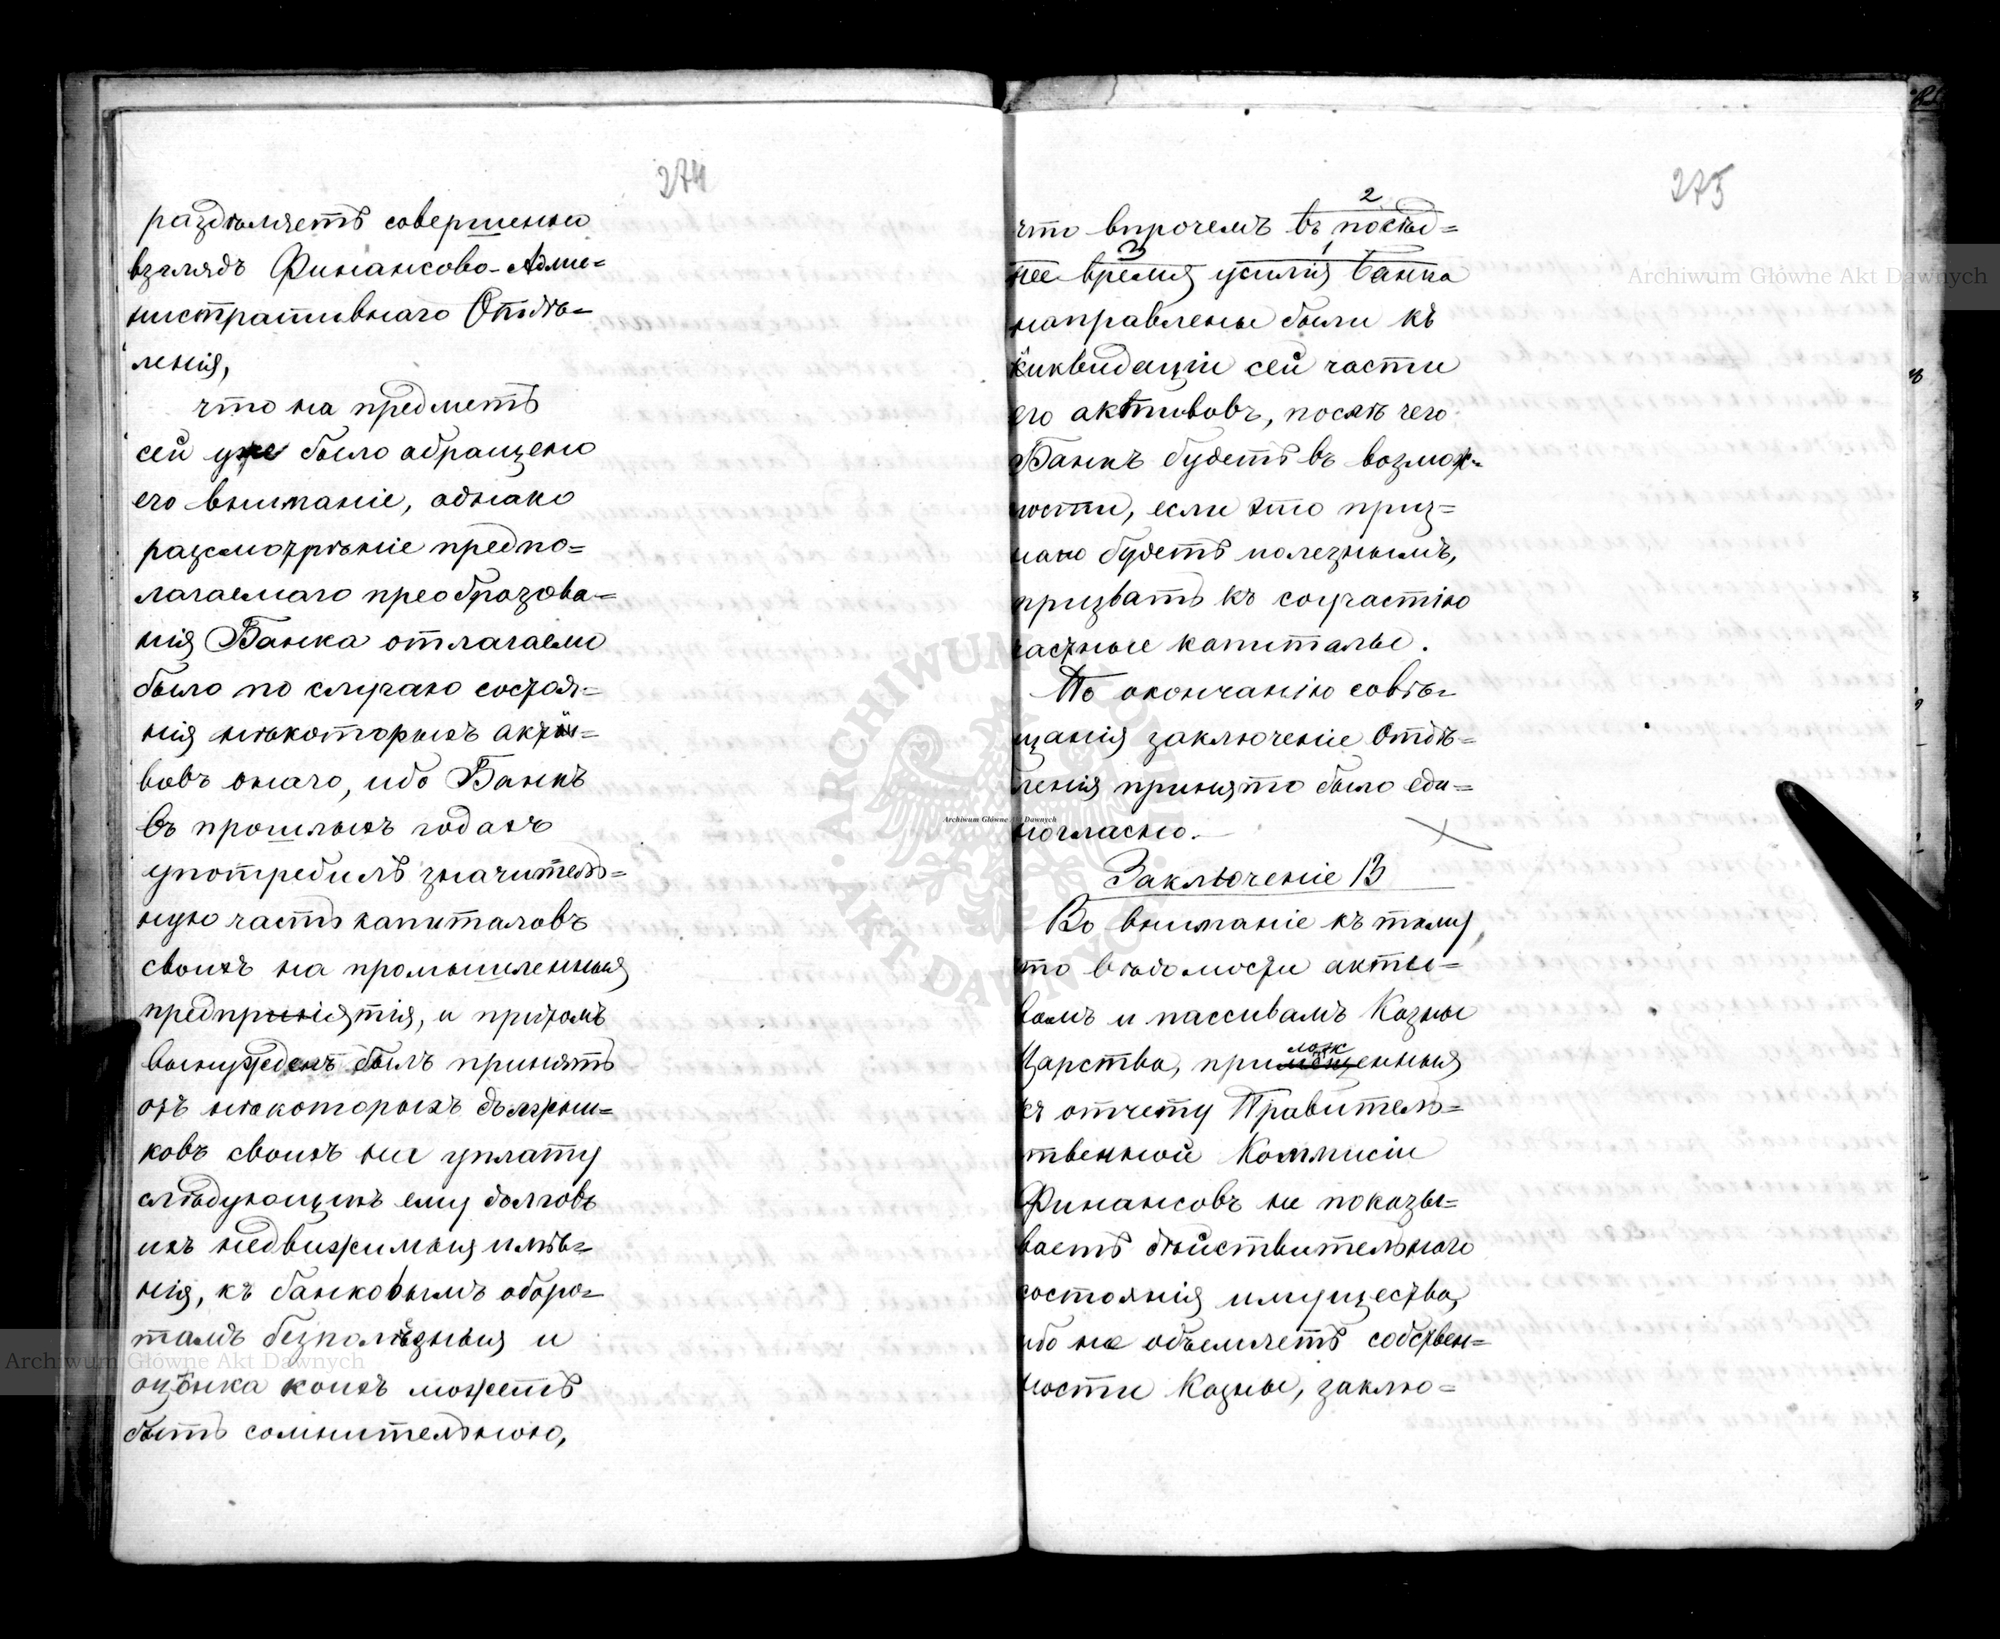 274
раздѣляетъ совершенно
взглядъ Финансово-Адми=
нистративнаго Отдѣ=
ленія,
что на предметъ
сей уже было обращено
его вниманіе, однако
разсмотрѣніе предпо=
лагаемаго преобразова=
нія Банка отлагаемо
было по случаю состоя=
нія нѣкоторыхъ акти=
вовъ онаго, ибо Банкъ
въ прошлыхъ годахъ
употребилъ значитель=
ную часть капиталовъ
своихъ на промышленныя
предпріятія, и притомъ
вынужденъ былъ принять
отъ нѣкоторыхъ должни=
ковъ своихъ на уплату
слѣдующихъ ему долговъ
ихъ недвижимыя имѣ=
нія, къ банковымъ оборо=
тамъ безполѣзныя и
оцѣнка коихъ можетъ
быть сомнительною,
275
что впрочемъ въ послѣд=
2
нее время усилія Банка
3 1
направлены были къ
ликвидаціи сей части
его активовъ, послѣ чего
Банкъ будетъ въ возмож=
ности, если это приз=
нано будетъ полезнымъ,
призвать къ соучастію
частные капиталы.
По окончанію совѣ=
щанія заключеніе Отдѣ=
ленія принято было еди=
ногласно.
Заключеніе 13
Во вниманіе къ тому,
что вѣдомости акти=
вамъ и пассивамъ Казны
Царства, примѣщенныя
лож
къ отчету Правитель=
ственной Коммисіи
Финансовъ не показы=
ваетъ дѣйствительнаго
состоянія имущества,
ибо не объемлетъ собствен=
ности Казны, заклю=
Archiwum Główne Akt Dawnych
Archiwum Główne Akt Dawnych
Archiwum Główne Akt Dawnych
ARCHIWUM GŁÓWNE AKT DAWNYCH